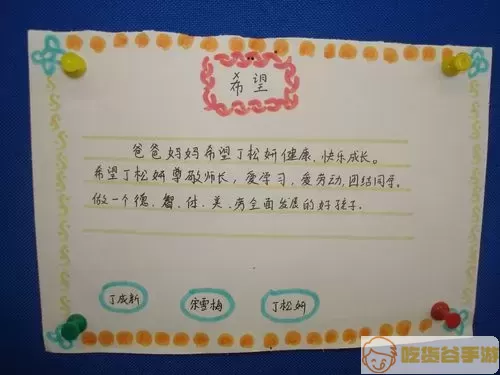 希望
爸爸妈妈希望丁松妍健康、快乐成长。
希望丁松妍尊敬师长，爱学习，爱劳动，团结同学。
做一个德、智、体、美、劳全面发展的好孩子。
丁成新 宋雪梅 丁松妍
吃货谷手游